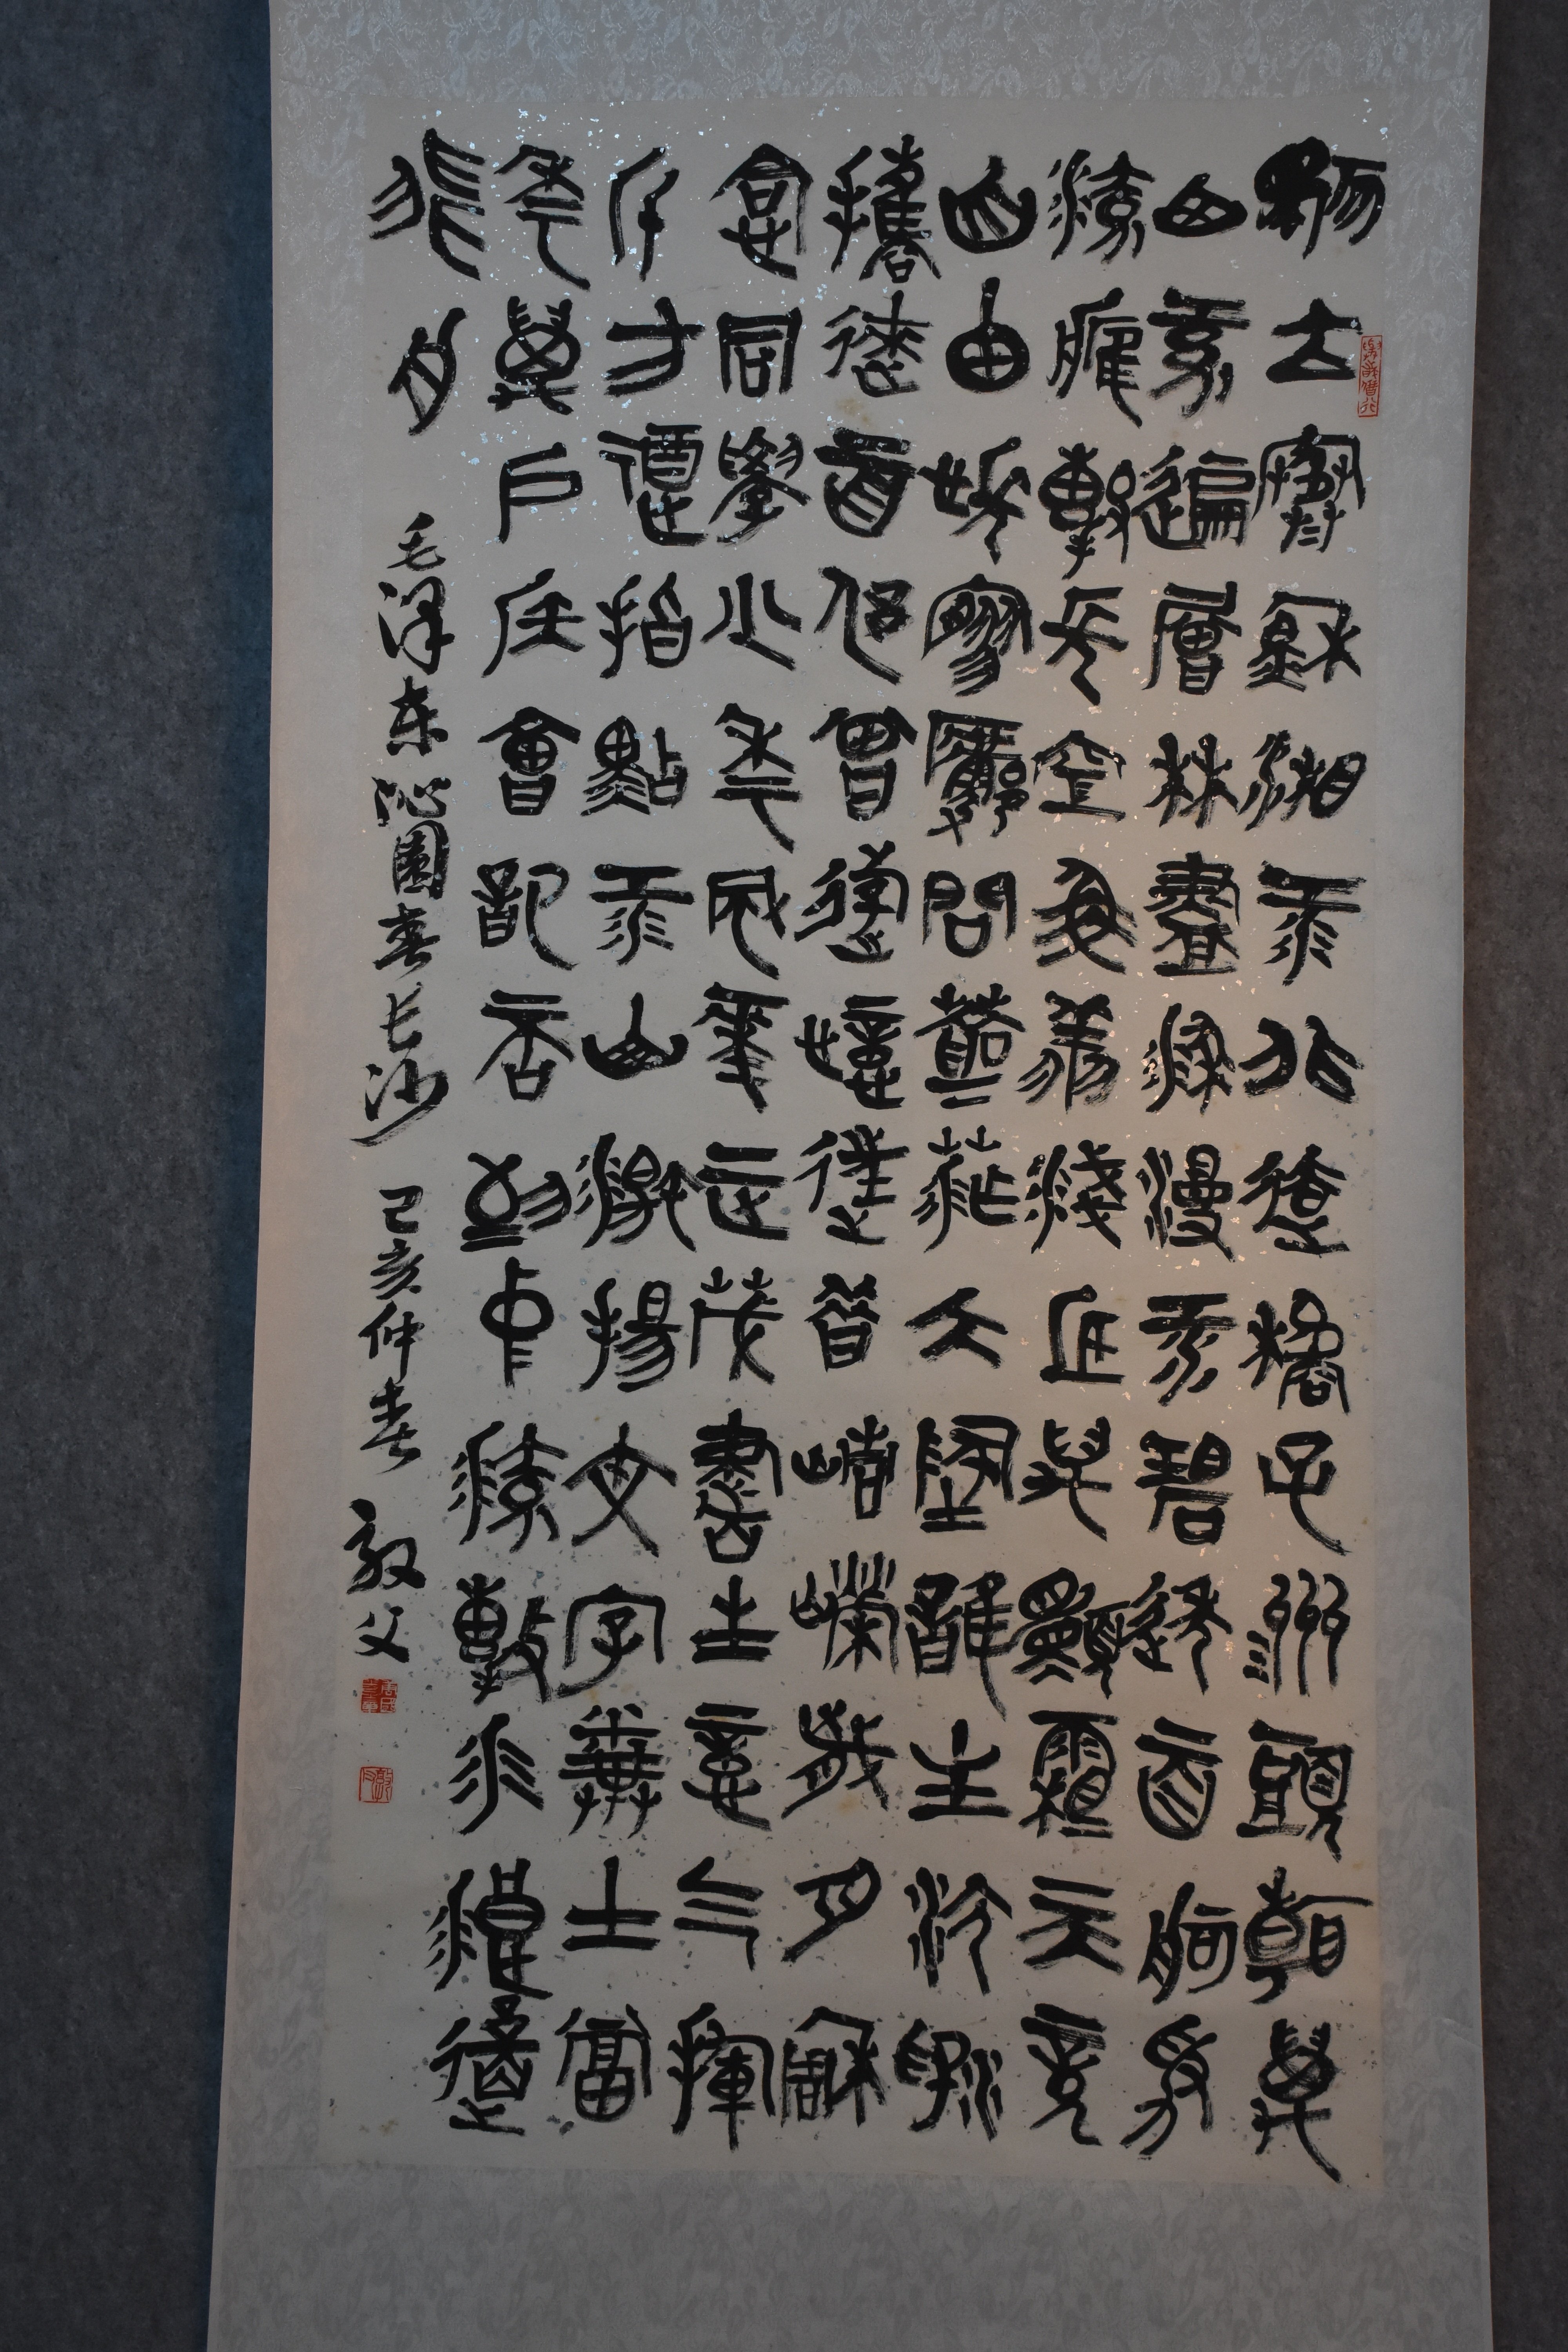 獨立寒秋湘江北去橘子洲頭看萬
山紅遍層林盡染漫江碧透百舸爭
流鷹擊長空魚翔淺底萬類霜天競
自由悵寥廓問蒼茫大地誰主沉浮
攜來百侶曾遊憶往昔崢嶸歲月稠
恰同學少年風華正茂書生意氣揮
斥方遒指點江山激揚文字糞土當
年萬戶侯曾記否到中流擊水浪遏
飛舟 毛泽东沁園春长沙 己亥仲春 敦父